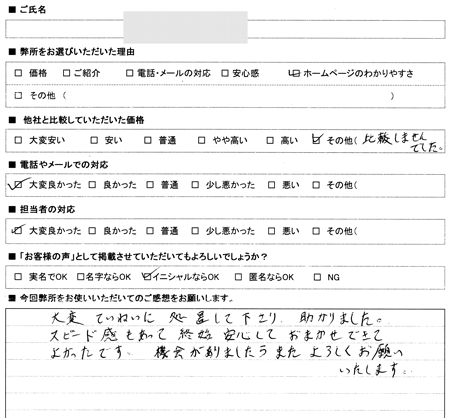 ■ ご氏名
■ 弊所をお選びいただいた理由
□ 価格 □ ご紹介 □ 電話・メールの対応 □ 安心感 ☑ ホームページのわかりやすさ
□ その他 ( )
■ 他社と比較していただいた価格
□ 大変安い □ 安い □ 普通 □ やや高い □ 高い ☑ その他( 比較しません
でした。
■ 電話やメールでの対応
☑ 大変良かった □ 良かった □ 普通 □ 少し悪かった □ 悪い □ その他(
■ 担当者の対応
☑ 大変良かった □ 良かった □ 普通 □ 少し悪かった □ 悪い □ その他(
■ 「お客様の声」として掲載させていただいてもよろしいでしょうか?
□ 実名でOK □ 名字ならOK ☑ イニシャルならOK □ 匿名ならOK □ NG
■ 今回弊所をお使いいただいてのご感想をお願いします。
大変 ていねいに 処置して下さり 助かりました。
スピード感もあって 終始 安心して おまかせできて
よかったです。 機会がありましたらまた よろしくお願い
いたします。